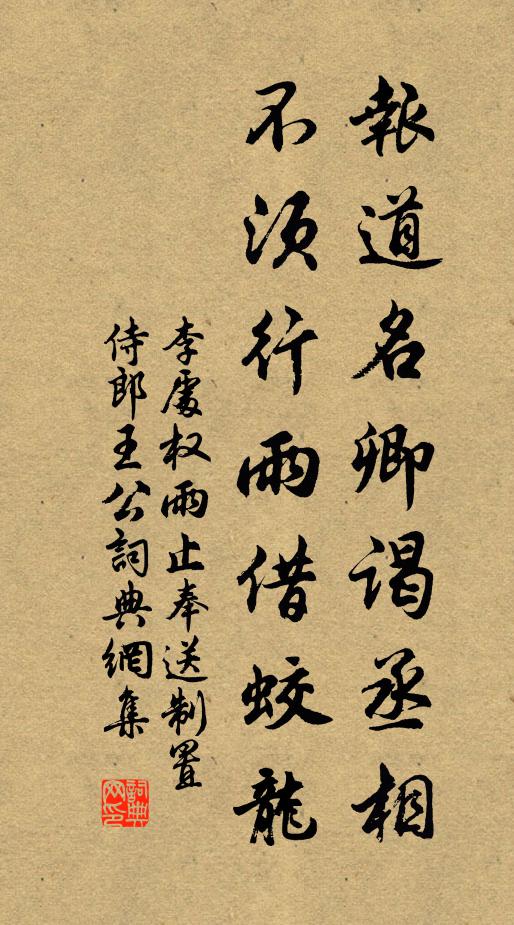 報道名卿謁丞相
不須行雨借蛟龍
李處权雨止奉送制置
侍郎王公詞典網集
詞典网印